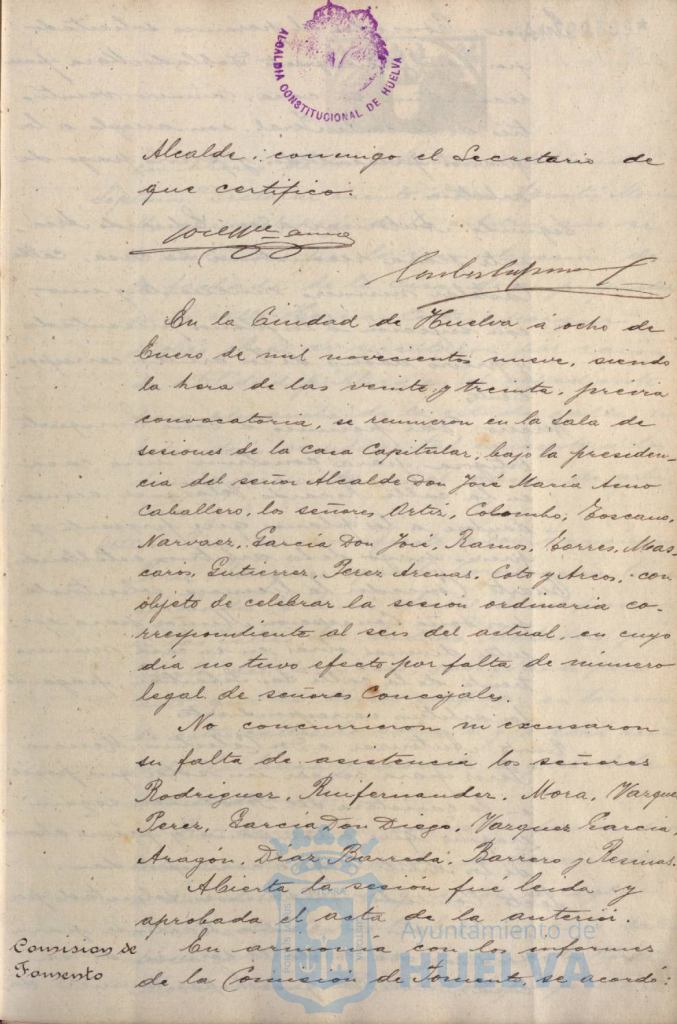 ALCALDIA CONSTITUCIONAL DE HUELVA
Alcalde; conmigo el Secretario de
que certifico.
En la Ciudad de Huelva á ocho de
Enero de mil novecientos nueve, siendo
la hora de las veinte y treinta, prévia
convocatoria, se reunieron en la Sala de
sesiones de la casa Capitular, bajo la presiden-
cia del señor Alcalde Don José María Amo
Caballero, los señores Ortiz, Colombo, Toscano,
Narvaez, García Don José, Ramos, Torres, Mas-
carós, Gutierrez, Perez Arenas, Coto y Arcos, con
objeto de celebrar la sesión ordinaria co-
rrespondiente al seis del actual, en cuyo
día no tuvo efecto por falta de número
legal de señores Concejales.
No concurrieron ni excusaron
su falta de asistencia los señores
Rodriguez, Ruifernandez, Mora, Vazquez
Perez, García Don Diego, Vazquez García,
Aragón, Diaz Barreda, Barrero y Resinas.
Abierta la sesión fué leida y
aprobada el acta de la anterior.
Comision de
Fomento
En armonía con los informes
de la Comisión de Fomento, se acordó:
Ayuntamiento de
HUELVA